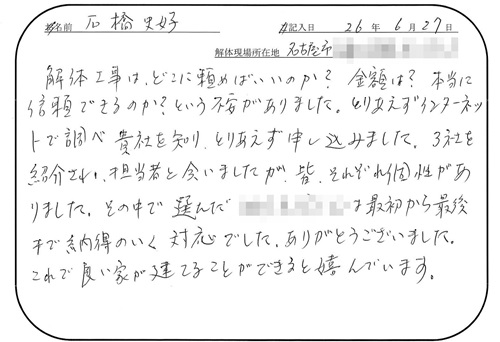 お名前 石橋 美好 ご記入日 26年6月27日
解体現場所在地 名古屋市
解体工事は、どこに頼めばいいのか? 金額は? 本当に
信頼できるのか? という不安がありました。とりあえずインターネッ
トで調べ 貴社を知り、とりあえず申し込みました。3社を
紹介され、担当者と会いましたが、皆、それぞれ個性があ
りました。その中で 選んだ は最初から最後
まで納得のいく 対応でした。ありがとうございました。
これで良い家が建てることができると嬉んでいます。